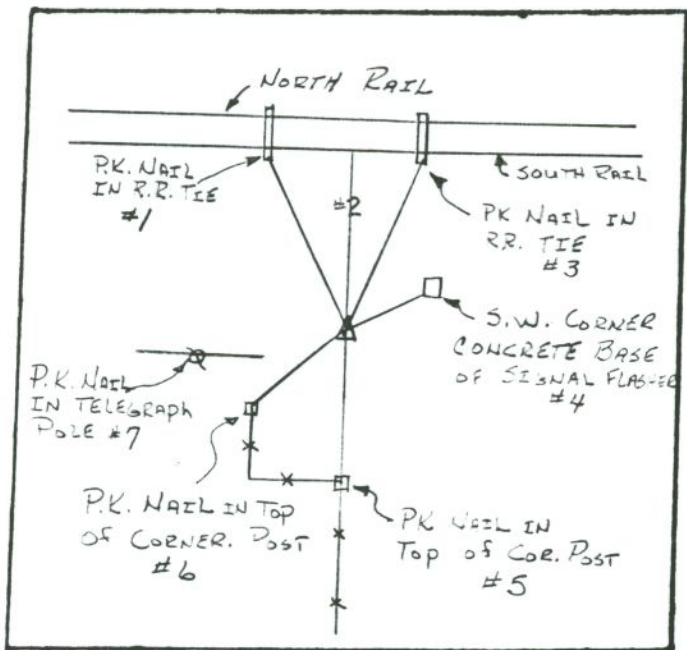 NORTH RAIL
P.K. NAIL
IN R.R. TIE
#1
#2
SOUTH RAIL
PK NAIL IN
RR. TIE
#3
S.W. CORNER
CONCRETE BASE
OF SIGNAL FLASHER
#4
P.K. NAIL
IN TELEGRAPH
POLE #7
P.K. NAIL IN TOP
OF CORNER. POST
#6
PK NAIL IN
TOP OF COR. POST
#5